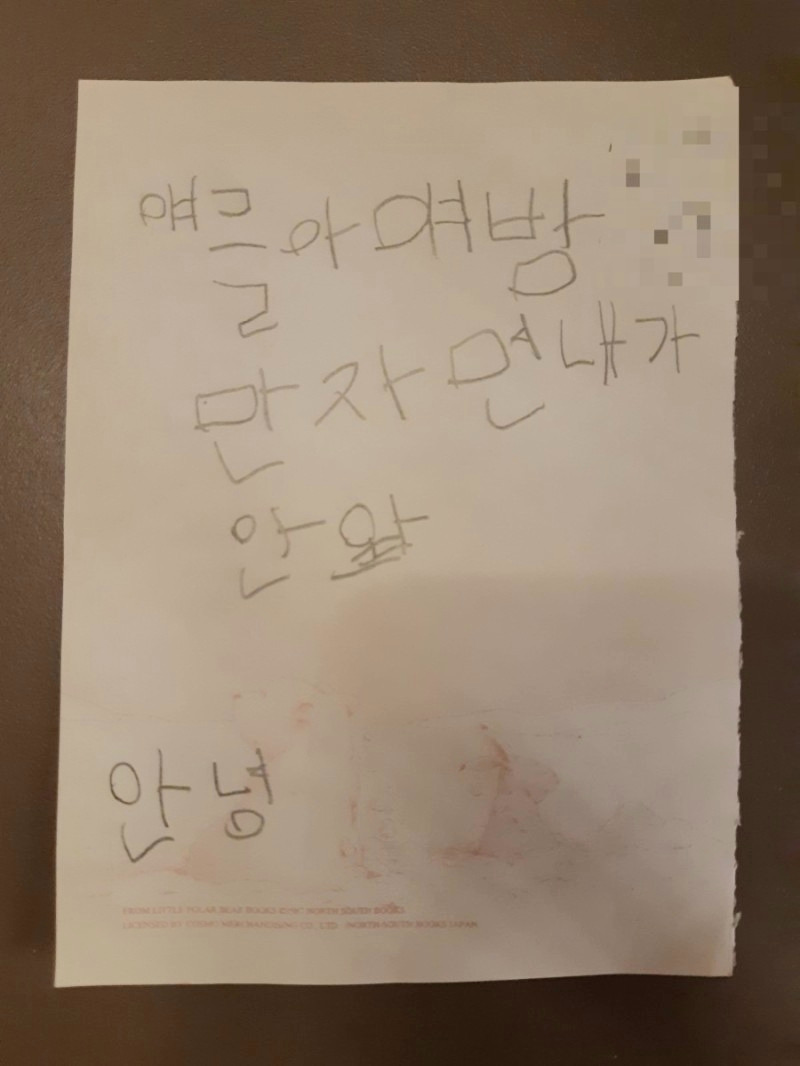 얘들아예방
만자면내가
안앞
안녕
FROM LITTLE POLAR BEAR BOOKS NORTH SOUTH BOOKS
LICENSED BY COSMO MERCHANDISING CO., LTD. /NORTH-SOUTH BOOKS JAPAN